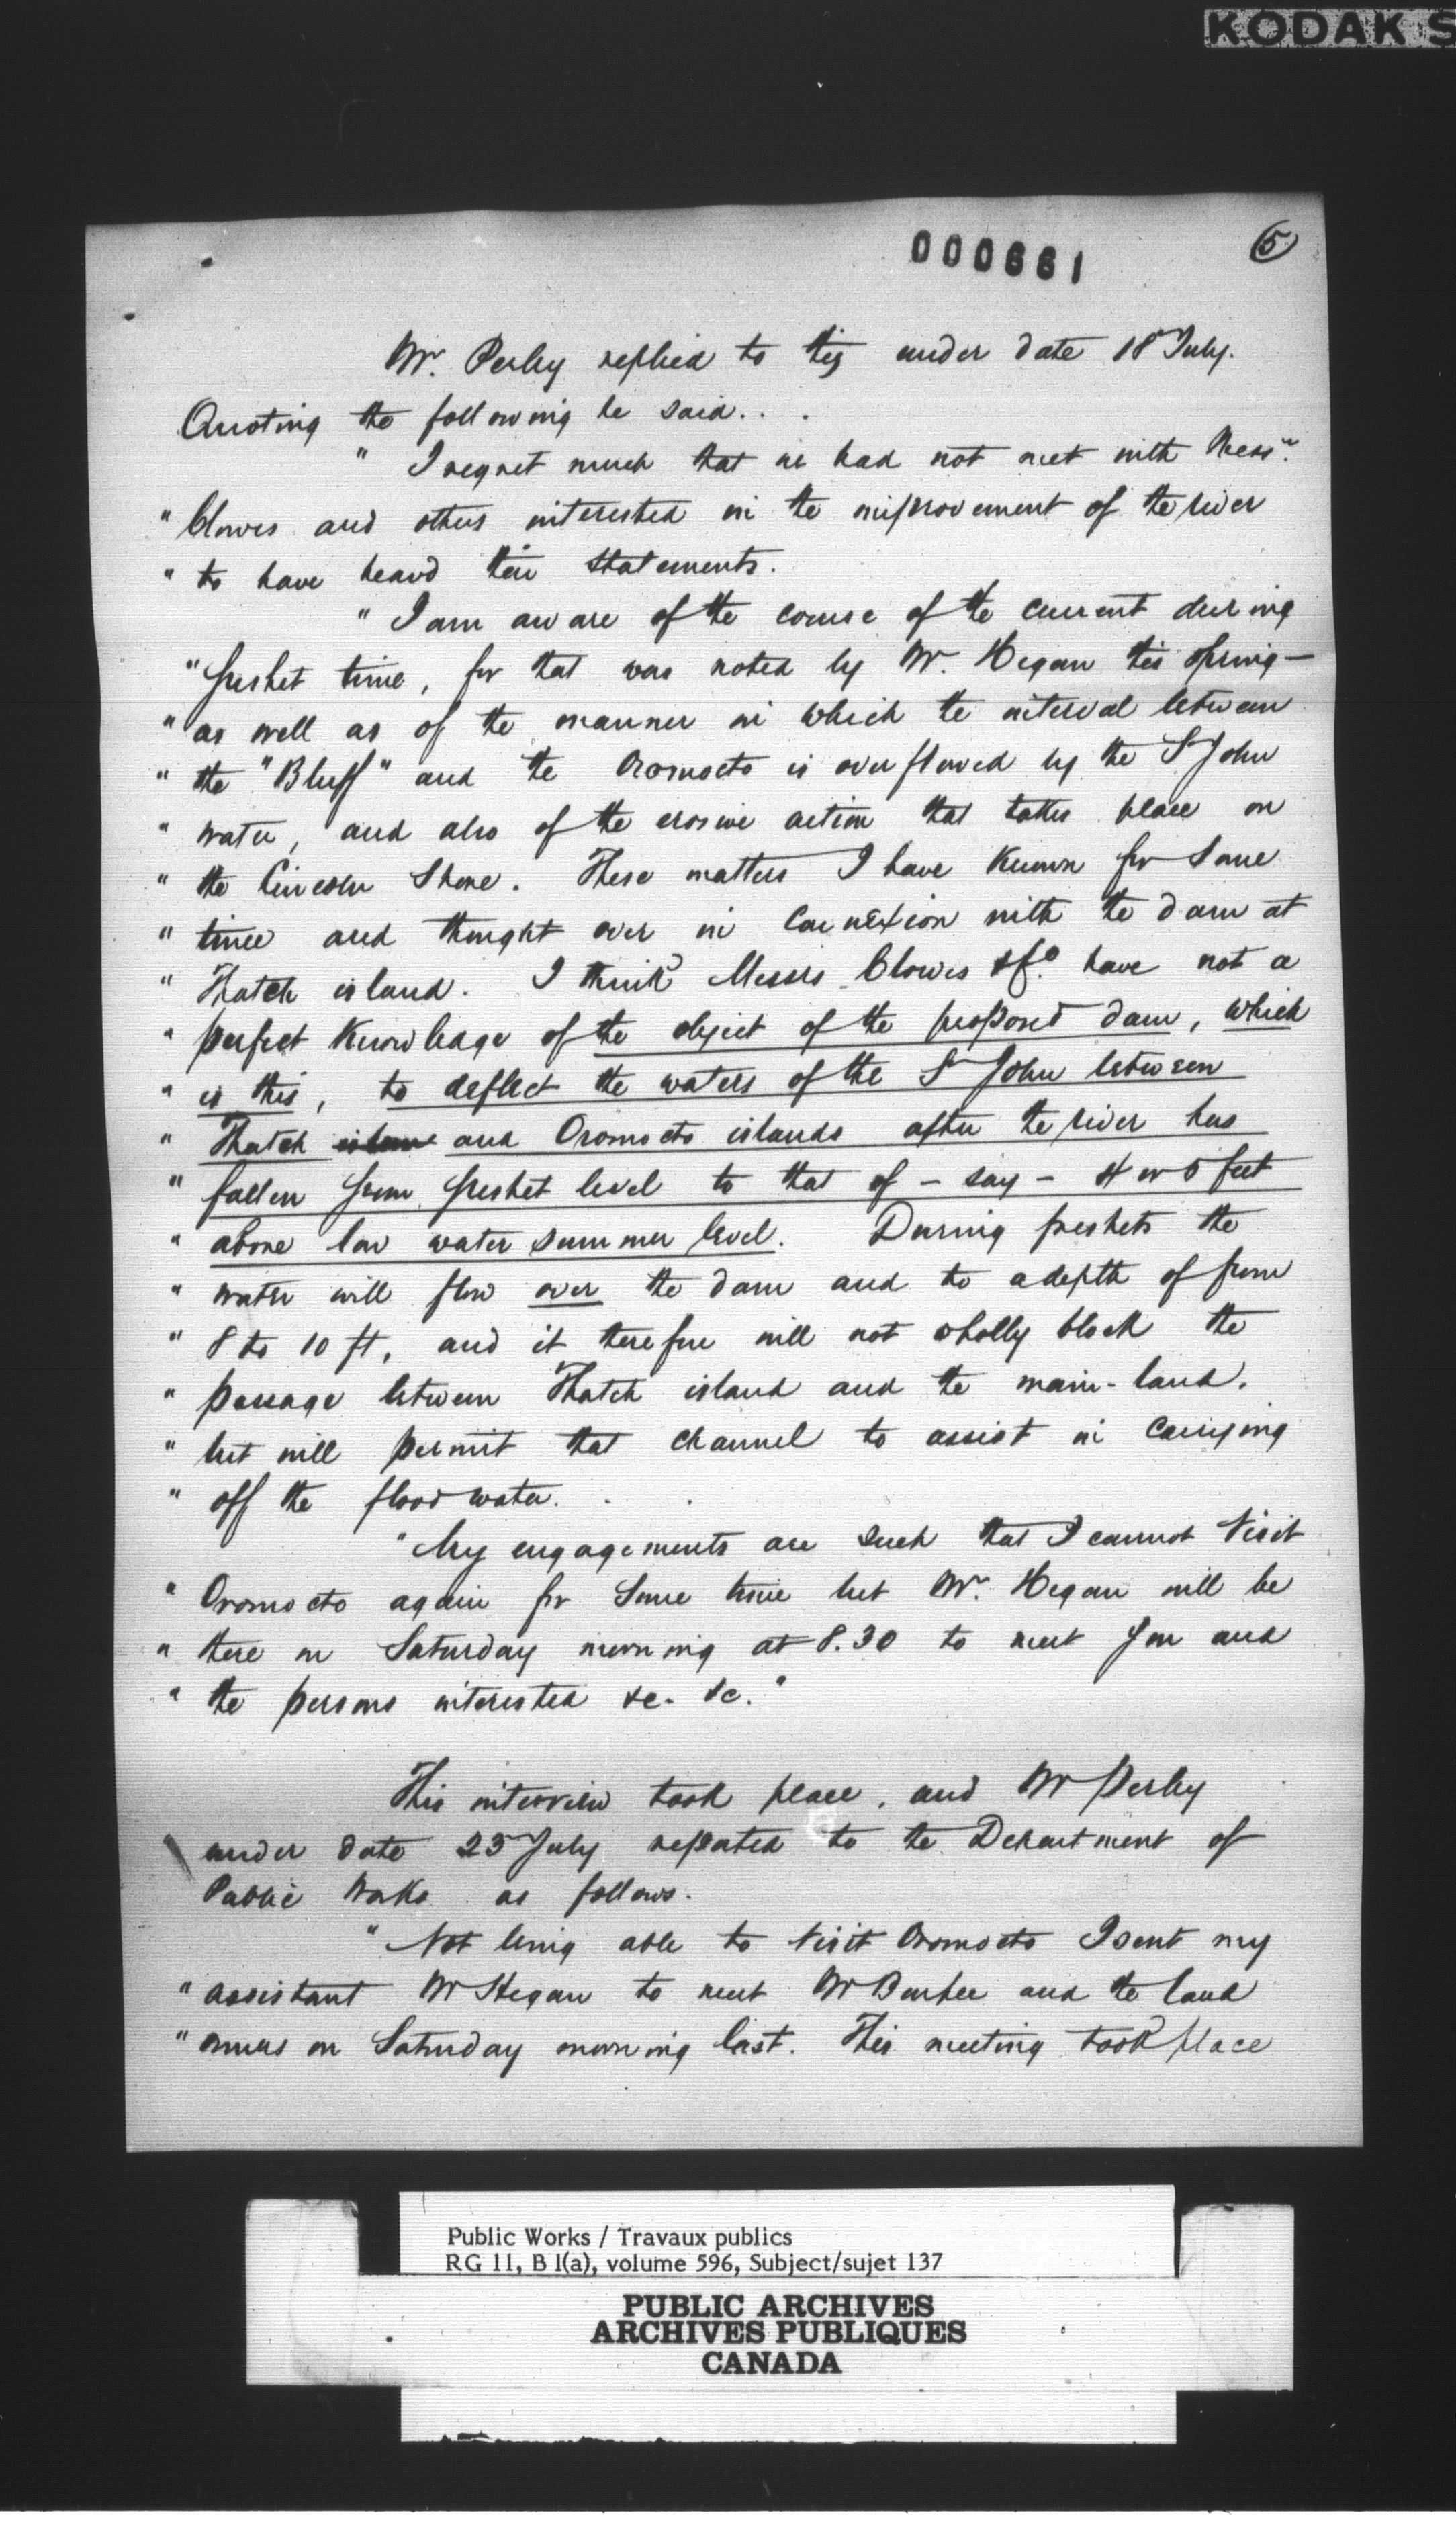 KODAK S
000661
5
Mr. Perley replied to this under date 18 July.
Quoting the following he said. . .
" I regret much that we had not met with Messrs.
" Clowes and others interested in the improvement of the river
" to have heard their statements.
" I am aware of the course of the current during
" freshet time, for that was noted by Mr. Hegan this spring —
" as well as of the manner in which the interval between
" the "Bluff" and the Oromocto is overflowed by the St John
" water, and also of the erosive action that takes place on
" the Lincoln Shore. These matters I have known for some
" time and thought over in connexion with the dam at
" Thatch island. I think Messrs Clowes & Co. have not a
" perfect knowledge of the object of the proposed dam, which
" is this, to deflect the waters of the St John between
" Thatch island and Oromocto islands after the river has
" fallen from freshet level to that of – say – 4 or 5 feet
" above low water summer level. During freshets the
" water will flow over the dam and to a depth of from
" 8 to 10 ft, and it therefore will not wholly block the
" passage between Thatch island and the main-land.
" but will permit that channel to assist in carrying
" off the flood water. . .
" My engagements are such that I cannot visit
" Oromocto again for some time but Mr. Hegan will be
" there on Saturday morning at 8.30 to meet you and
" the persons interested &c. &c."
This interview took place, and Mr Perley
under date 23 July reported to the Department of
Public Works as follows.
" Not being able to visit Oromocto I sent my
" assistant Mr Hegan to meet Mr Burpee and the land
" owners on Saturday morning last. This meeting took place
Public Works / Travaux publics
RG 11, B 1(a), volume 596, Subject/sujet 137
PUBLIC ARCHIVES
ARCHIVES PUBLIQUES
CANADA